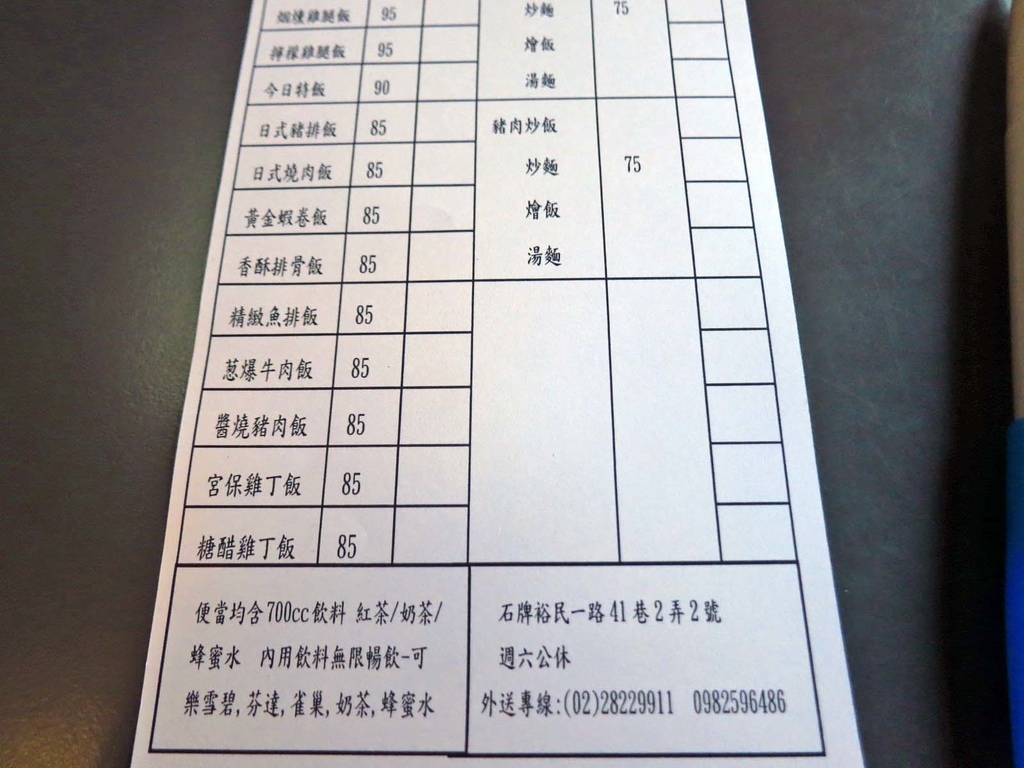 烟燻雞腿飯 95 炒麵 75
檸檬雞腿飯 95 燴飯
今日特飯 90 湯麵
日式豬排飯 85 豬肉炒飯
日式燒肉飯 85 炒麵 75
黃金蝦卷飯 85 燴飯
香酥排骨飯 85 湯麵
精緻魚排飯 85
葱爆牛肉飯 85
醬燒豬肉飯 85
宮保雞丁飯 85
糖醋雞丁飯 85
便當均含700cc飲料 紅茶/奶茶/
蜂蜜水 內用飲料無限暢飲-可
樂雪碧,芬達,雀巢,奶茶,蜂蜜水
石牌裕民一路41巷2弄2號
週六公休
外送專線:(02)28229911 0982596486